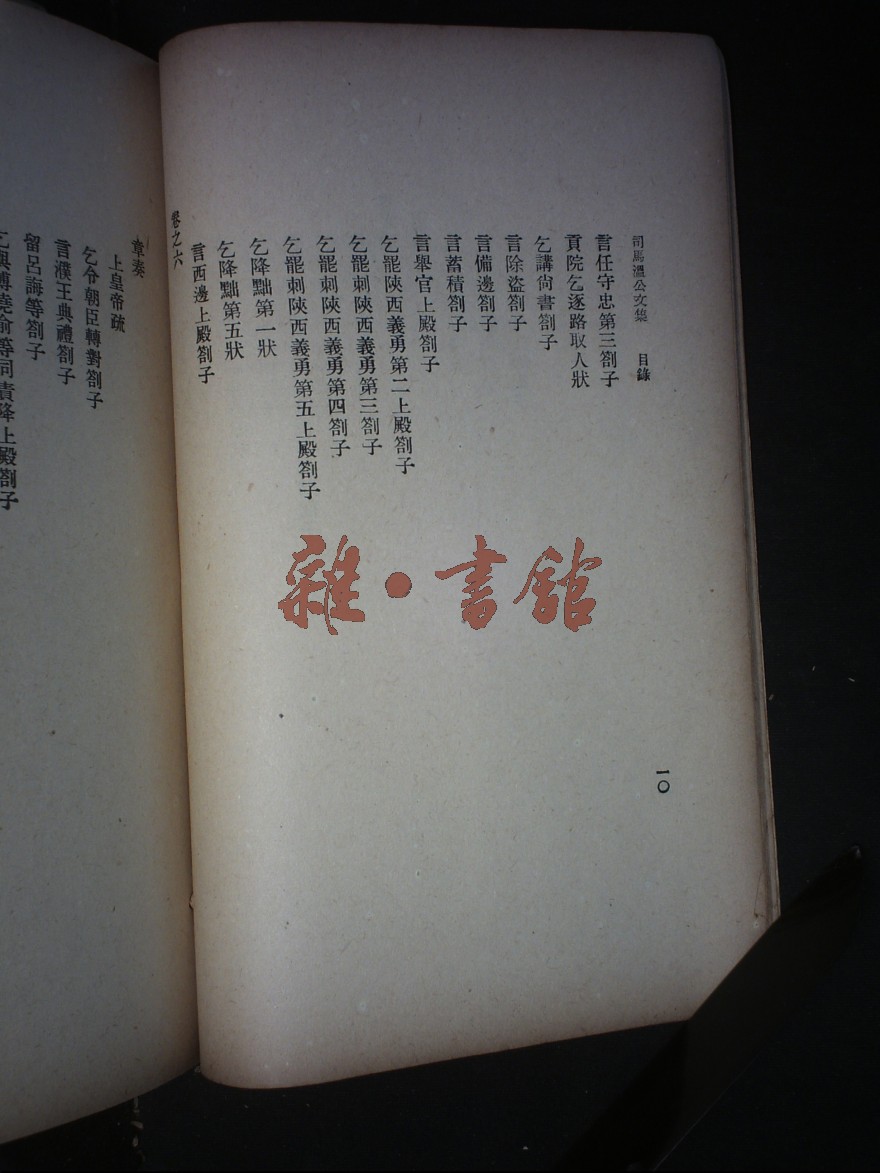 司馬溫公文集　目錄
言任守忠第三劄子
貢院乞逐路取人狀
乞講尙書劄子
言除盜劄子
言備邊劄子
言蓄積劄子
言舉官上殿劄子
乞罷陝西義勇第二上殿劄子
乞罷刺陝西義勇第三劄子
乞罷刺陝西義勇第四劄子
乞罷刺陝西義勇第五上殿劄子
乞降黜第一狀
乞降黜第五狀
言西邊上殿劄子
卷之六
章奏
上皇帝疏
乞令朝臣轉對劄子
言濮王典禮劄子
留呂誨等劄子
乞與傅堯俞等同責降上殿劄子
一〇
雜·書館